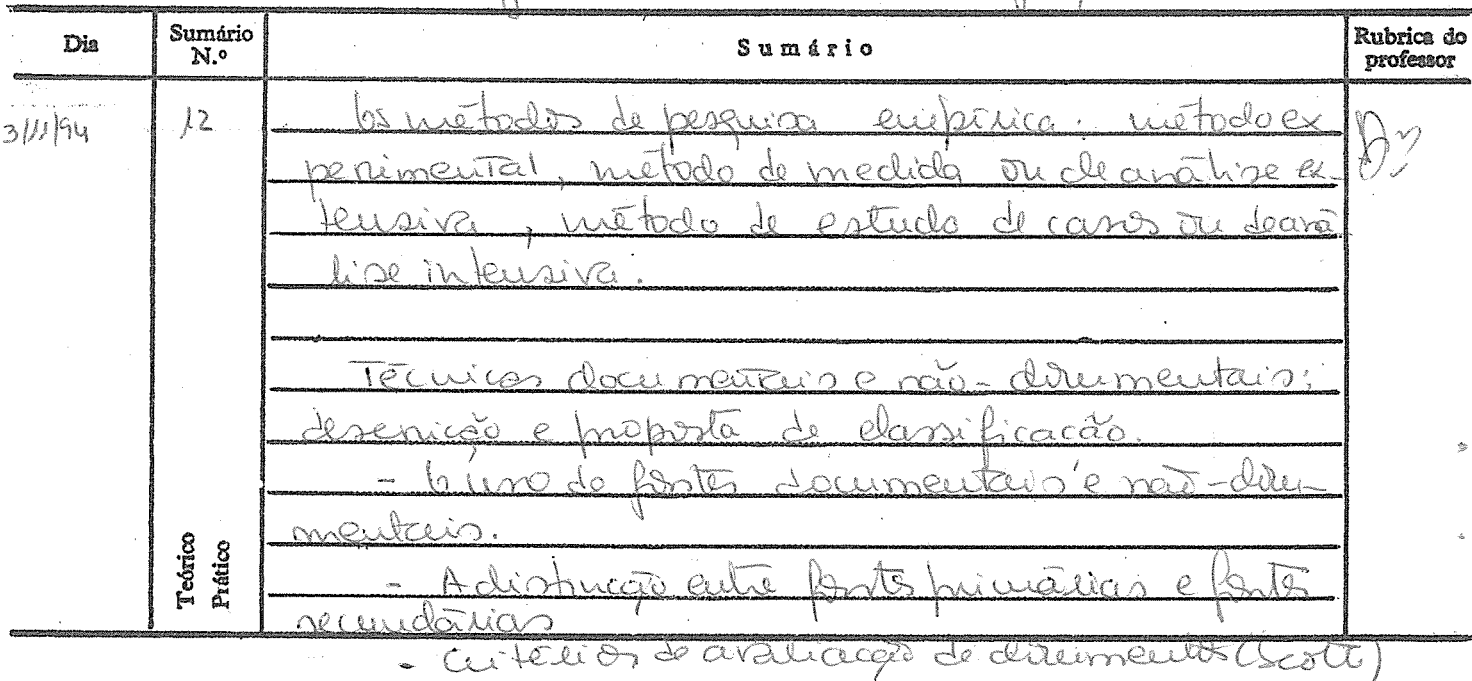 Dia
Sumário N.º
Sumário
Rubrica do professor
3/11/94
12
Os métodos de pesquisa empírica: método ex
perimental, método de medida ou de análise ex-
tensiva, método de estudo de casos ou de aná
lise intensiva.
Técnicas documentais e não-documentais:
descrição e proposta de classificação.
- O uso de fontes documentais e não-docu-
mentais.
- A distinção entre fontes primárias e fontes
secundárias
- Critérios de avaliação de documentos (Scott)
Teórico
Prático